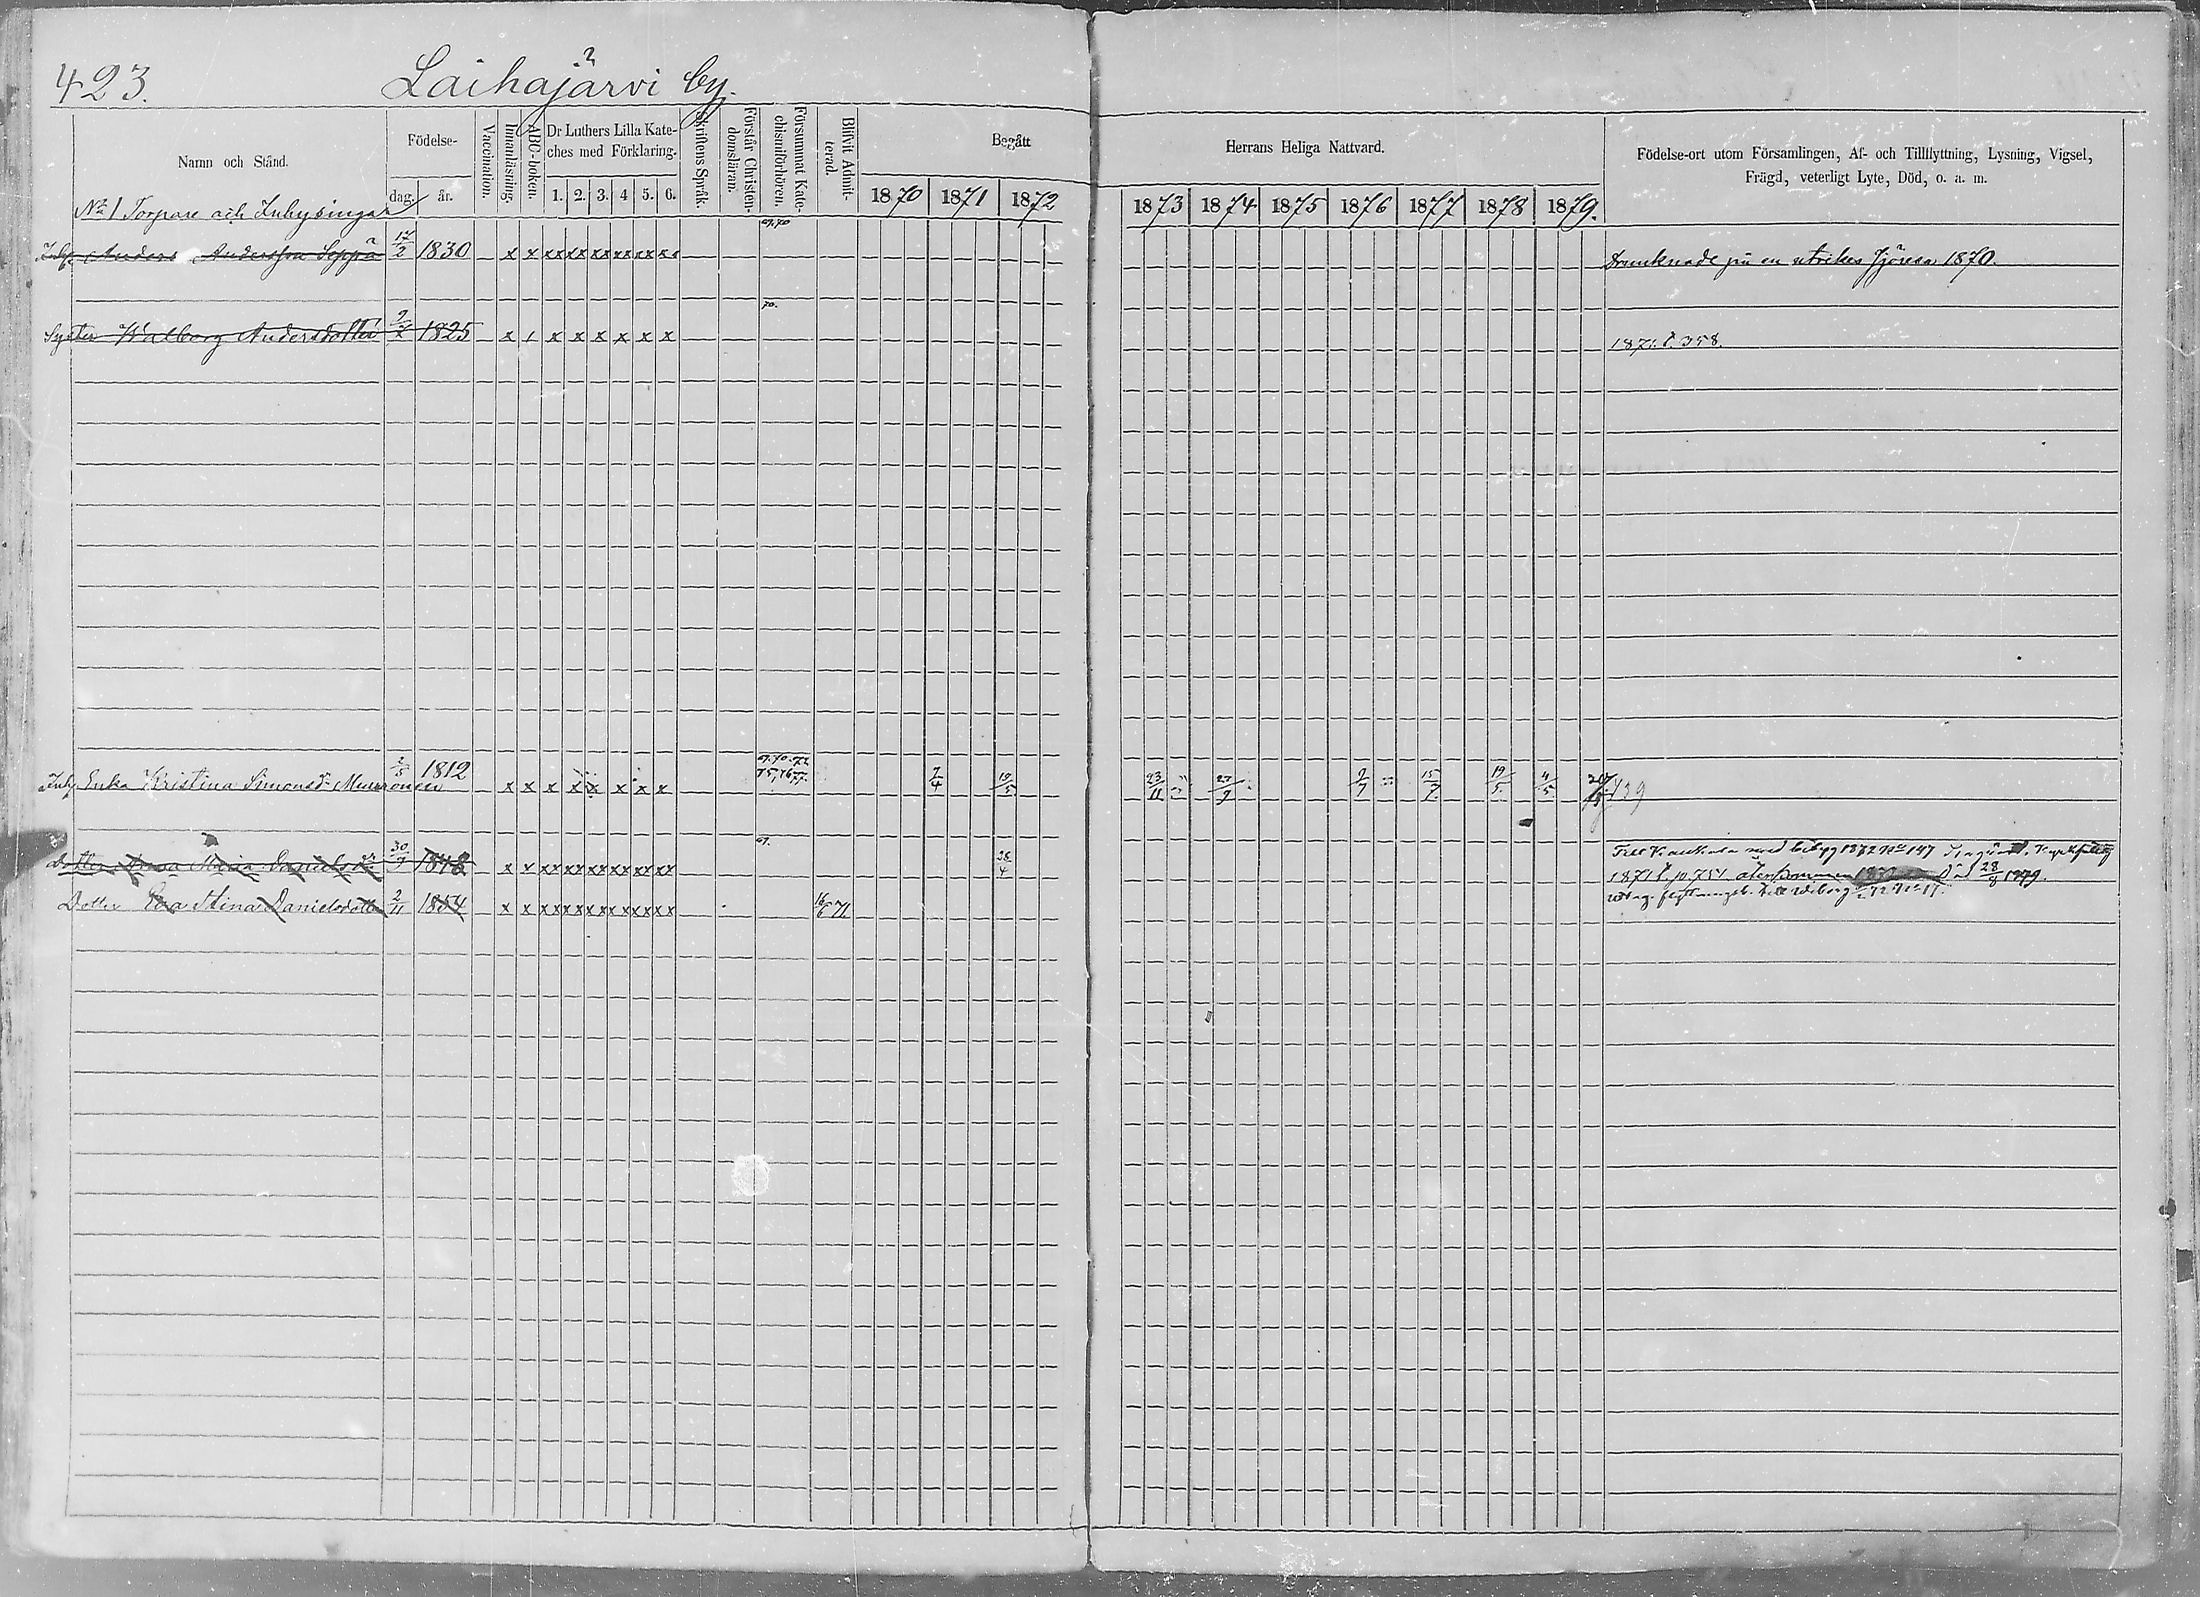 423.
Laihajärvi by.
Namn och Stånd.
Födelse-
dag.
år.
Vaccination.
Innanläsning.
ABC-boken.
Dr Luthers Lilla Kate-
ches med Förklaring.
1. 2. 3. 4 5. 6.
Skriftens Språk.
Förstår Christen-
domsläran.
Försummat Kate-
chismiförhören.
Blifvit Admit-
terad.
Begått
1870 1871 1872
Herrans Heliga Nattvard.
1873 1874 1875 1876 1877 1878 1879.
Födelse-ort utom Församlingen, Af- och Tillflyttning, Lysning, Vigsel,
Frägd, veterligt Lyte, Död, o. a. m.
No 1 Torpare och Inhysingar
69.70
Inhys. Anders Andersson Seppä 1830 x x x x x x x x x x x x x x Drunknade på en utrikes sjöresa 1870.
70.
Syster Walborg Andersdotter 1825 x / x x x x x x 1871. P. 358.
Inhy. Erika Kristina Simonsdr Muuronen 2/5 1812 x x x x x x x x 75, 76 77. 2/4 19/5 23/11 27/9 2/7 15/7 19/5 4/5 439
69.
Dotter Anna Maria Danielsdr 30/7 1848 x x x x x x x x x x x x x x 28/4 Till Kaukola med betyg 1872 No 147
Dotter Eva Stina Danielsdotter 2/11 1854 x x x x x x x x x x x x x x 16/6 71 1871 P. p. 754 återkommen 28/8 1879.
Wiborg 72 No 17.